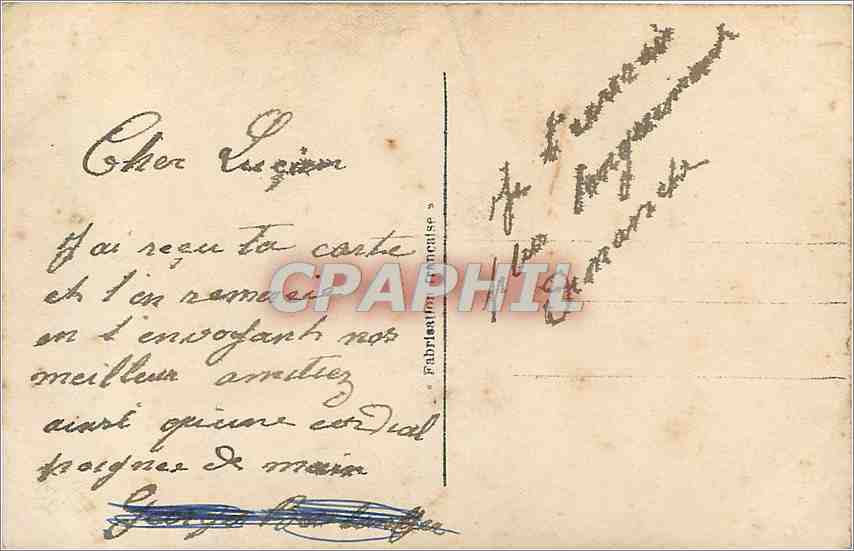 Cher Lucien
J'ai reçu ta carte
et t'en remercie
en t'envoyant nos
meilleur amitiez
ainsi qu'une cordial
poignee de main
Georges
« Fabrication Française »
CPAPHIL
Je t'ecrirai
plus longuement
Dimanche